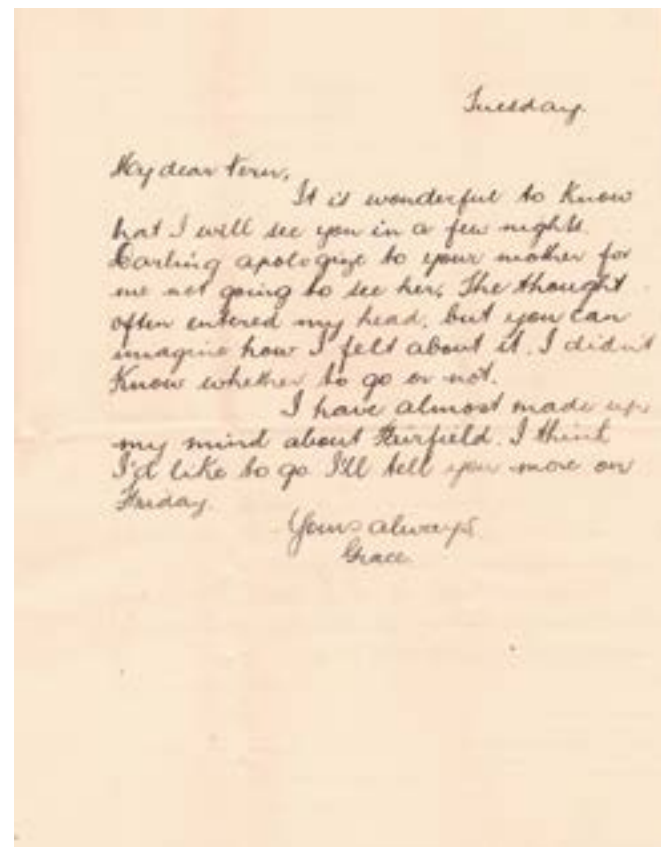 Tuesday.
My dear Vern,
It is wonderful to know
hat I will see you in a few nights.
Darling apologize to your mother for
me not going to see her. The thought
often entered my head, but you can
imagine how I felt about it. I didn't
know whether to go or not.
I have almost made up
my mind about Fairfield. I think
I'd like to go I'll tell you more on
Friday.
Yours always,
Grace.